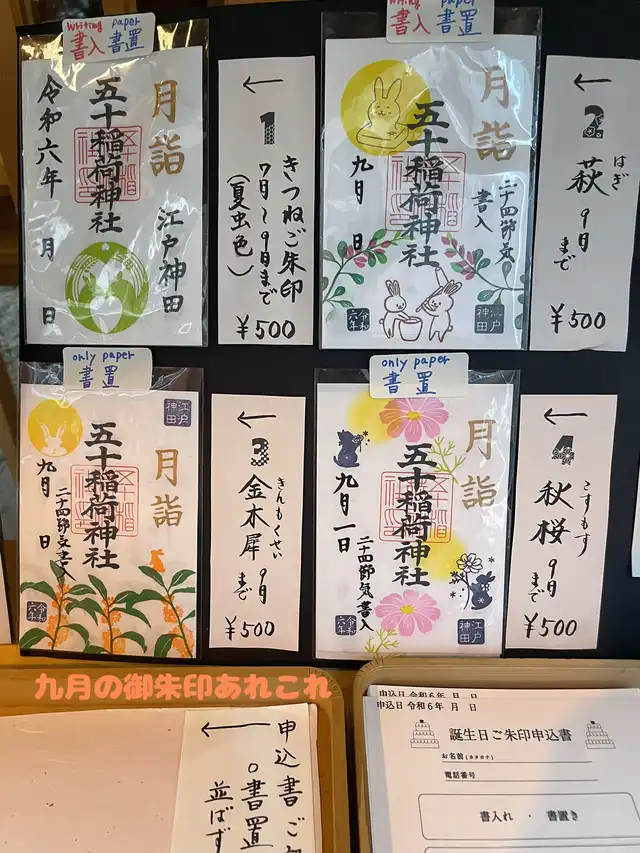 writing paper
書入 書置
月詣
五十稲荷神社
江戸神田
令和六年 月 日
←
1
きつねご朱印
7月〜9月まで
(夏虫色)
¥500
writing paper
書入 書置
月詣
二十四節気
書入
五十稲荷神社
九月 日
令和六年
江戸神田
←
2
萩 はぎ
9月
まで
¥500
only paper
書置
江戸神田
月詣
五十稲荷神社
九月 日
二十四節気書入
令和六年
←
3
金木犀 きんもくせい
9月
まで
¥500
only paper
書置
月詣
五十稲荷神社
九月一日
二十四節気書入
令和六年
江戸神田
←
4
秋桜 こすもす
9月
まで
¥500
九月の御朱印あれこれ
←
申込書ご
○書置
並ばず
申込日 令和6年 月 日
申込日 令和6年 月 日
誕生日ご朱印申込書
お名前(カタカナ)
電話番号
書入れ ・ 書置き